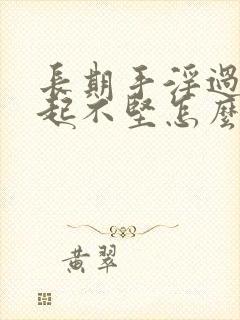 長期手淫過
起不堅怎麼
黃翠